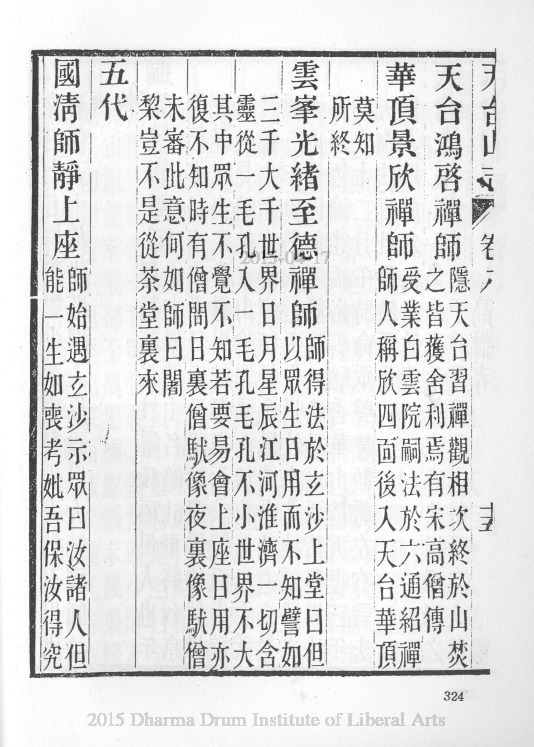 天台山志
十五
天台鴻啓禪師
隱天台習禪觀相次終於山焚
之皆獲舍利焉有宋高僧傳
華頂景欣禪師
受業白雲院嗣法於六通紹禪
師人稱欣四面後入天台華頂
莫知
所終
雲峯光緒至德禪師
師得法於玄沙上堂曰但
以眾生日用而不知譬如
三千大千世界日月星辰江河淮濟一切含
靈從一毛孔入一毛孔毛孔不小世界不大
其中眾生不覺不知若要易會上座日用亦
復不知時有僧問日裏僧馱像夜裏像馱僧
未審此意何如師曰闍
黎豈不是從茶堂裏來
五代
國清師靜上座
師始遇玄沙示眾曰汝諸人但
能一生如喪考妣吾保汝得究
324
2015 Dharma Drum Institute of Liberal Arts